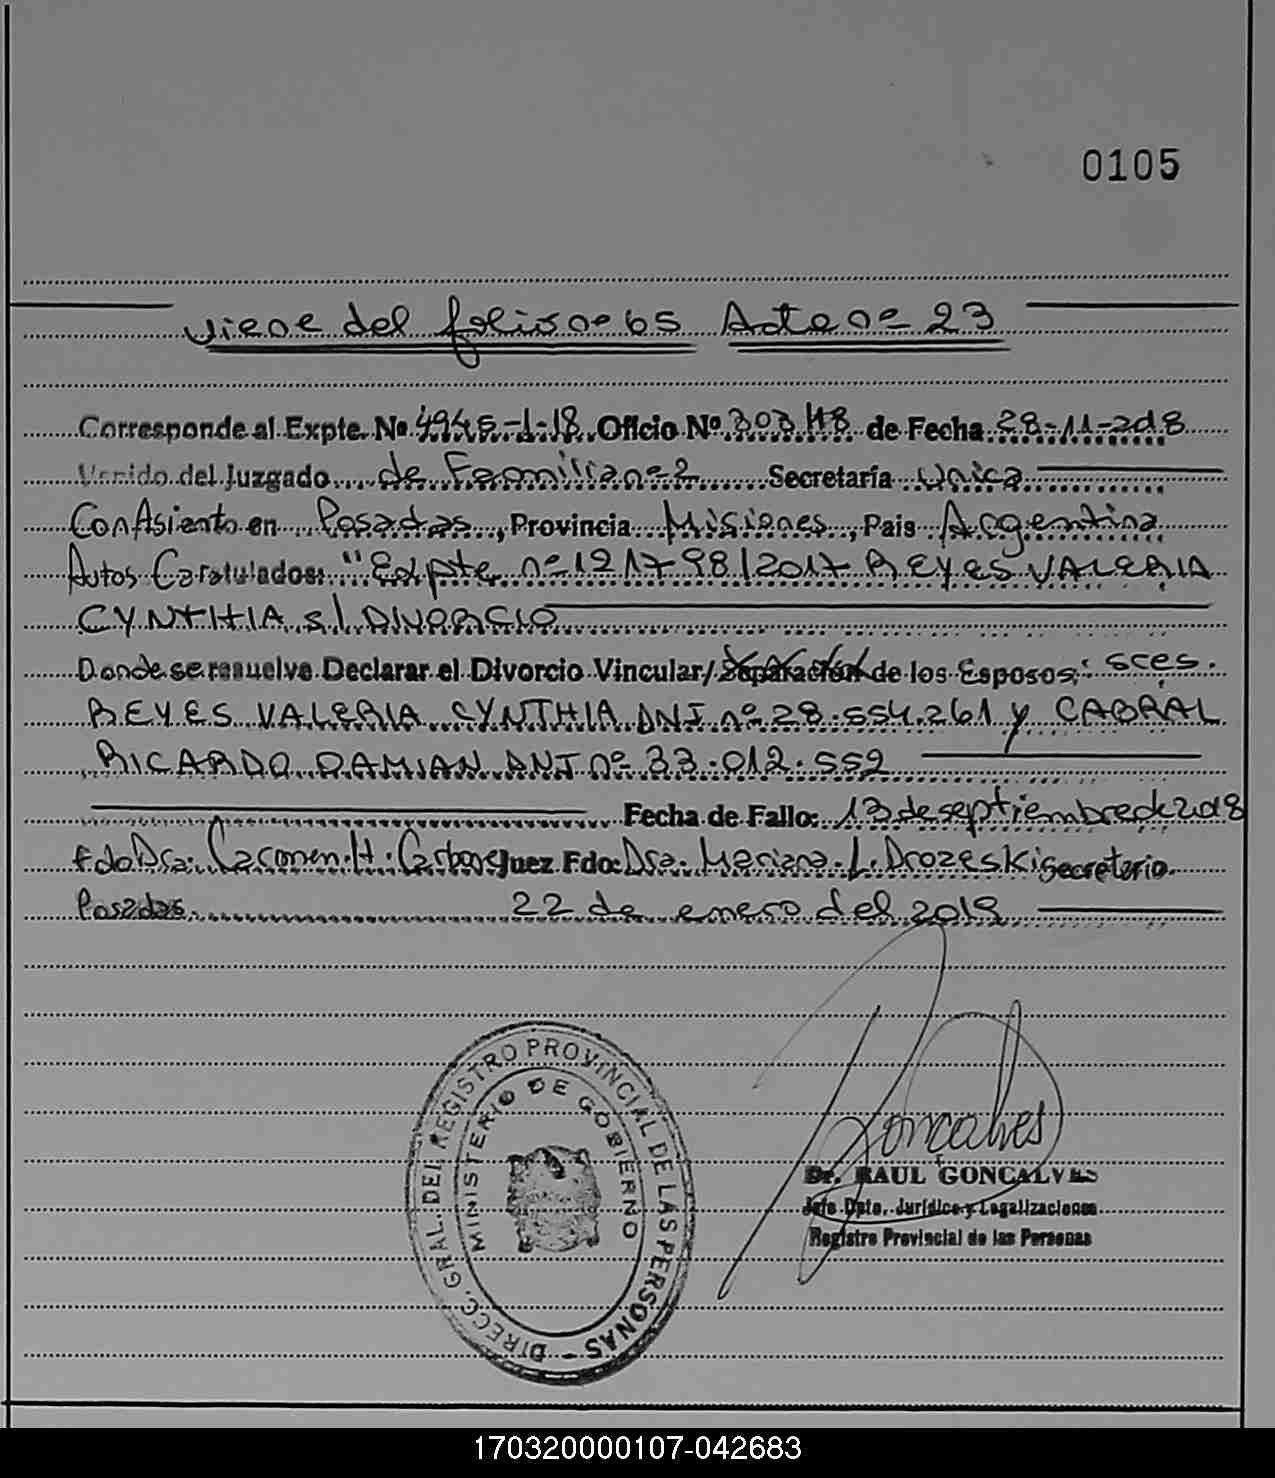 0105
viene del folio nº 65 Acta nº 23
Corresponde al Expte. Nº 4945-1-18 Oficio Nº 303/18 de Fecha 28-11-2018
Venido del Juzgado de Familia nº 2 Secretaría Unica
Con Asiento en Posadas, Provincia Misiones, Pais Argentina
Autos Caratulados: "Expte nº 121798/2017 REYES VALERIA
CYNTHIA s/ DIVORCIO
Donde se resuelve Declarar el Divorcio Vincular/Separación de los Esposos: sres.
REYES VALERIA CYNTHIA DNI nº 28.554.261 y CABRAL
RICARDO DAMIAN DNI nº 33.012.552
Fecha de Fallo: 13 de septiembre de 2018
Fdo Dra. Carmen H. Carbone Juez Fdo: Dra. Mariana L. Drozeski Secretario.
Posadas. 22 de enero del 2019
DIRECC. GRAL. DEL REGISTRO PROVINCIAL DE LAS PERSONAS -
MINISTERIO DE GOBIERNO
Goncalves
Dr. RAUL GONCALVES
Jefe Dpto. Jurídico y Legalizaciones
Registro Provincial de las Personas
170320000107-042683